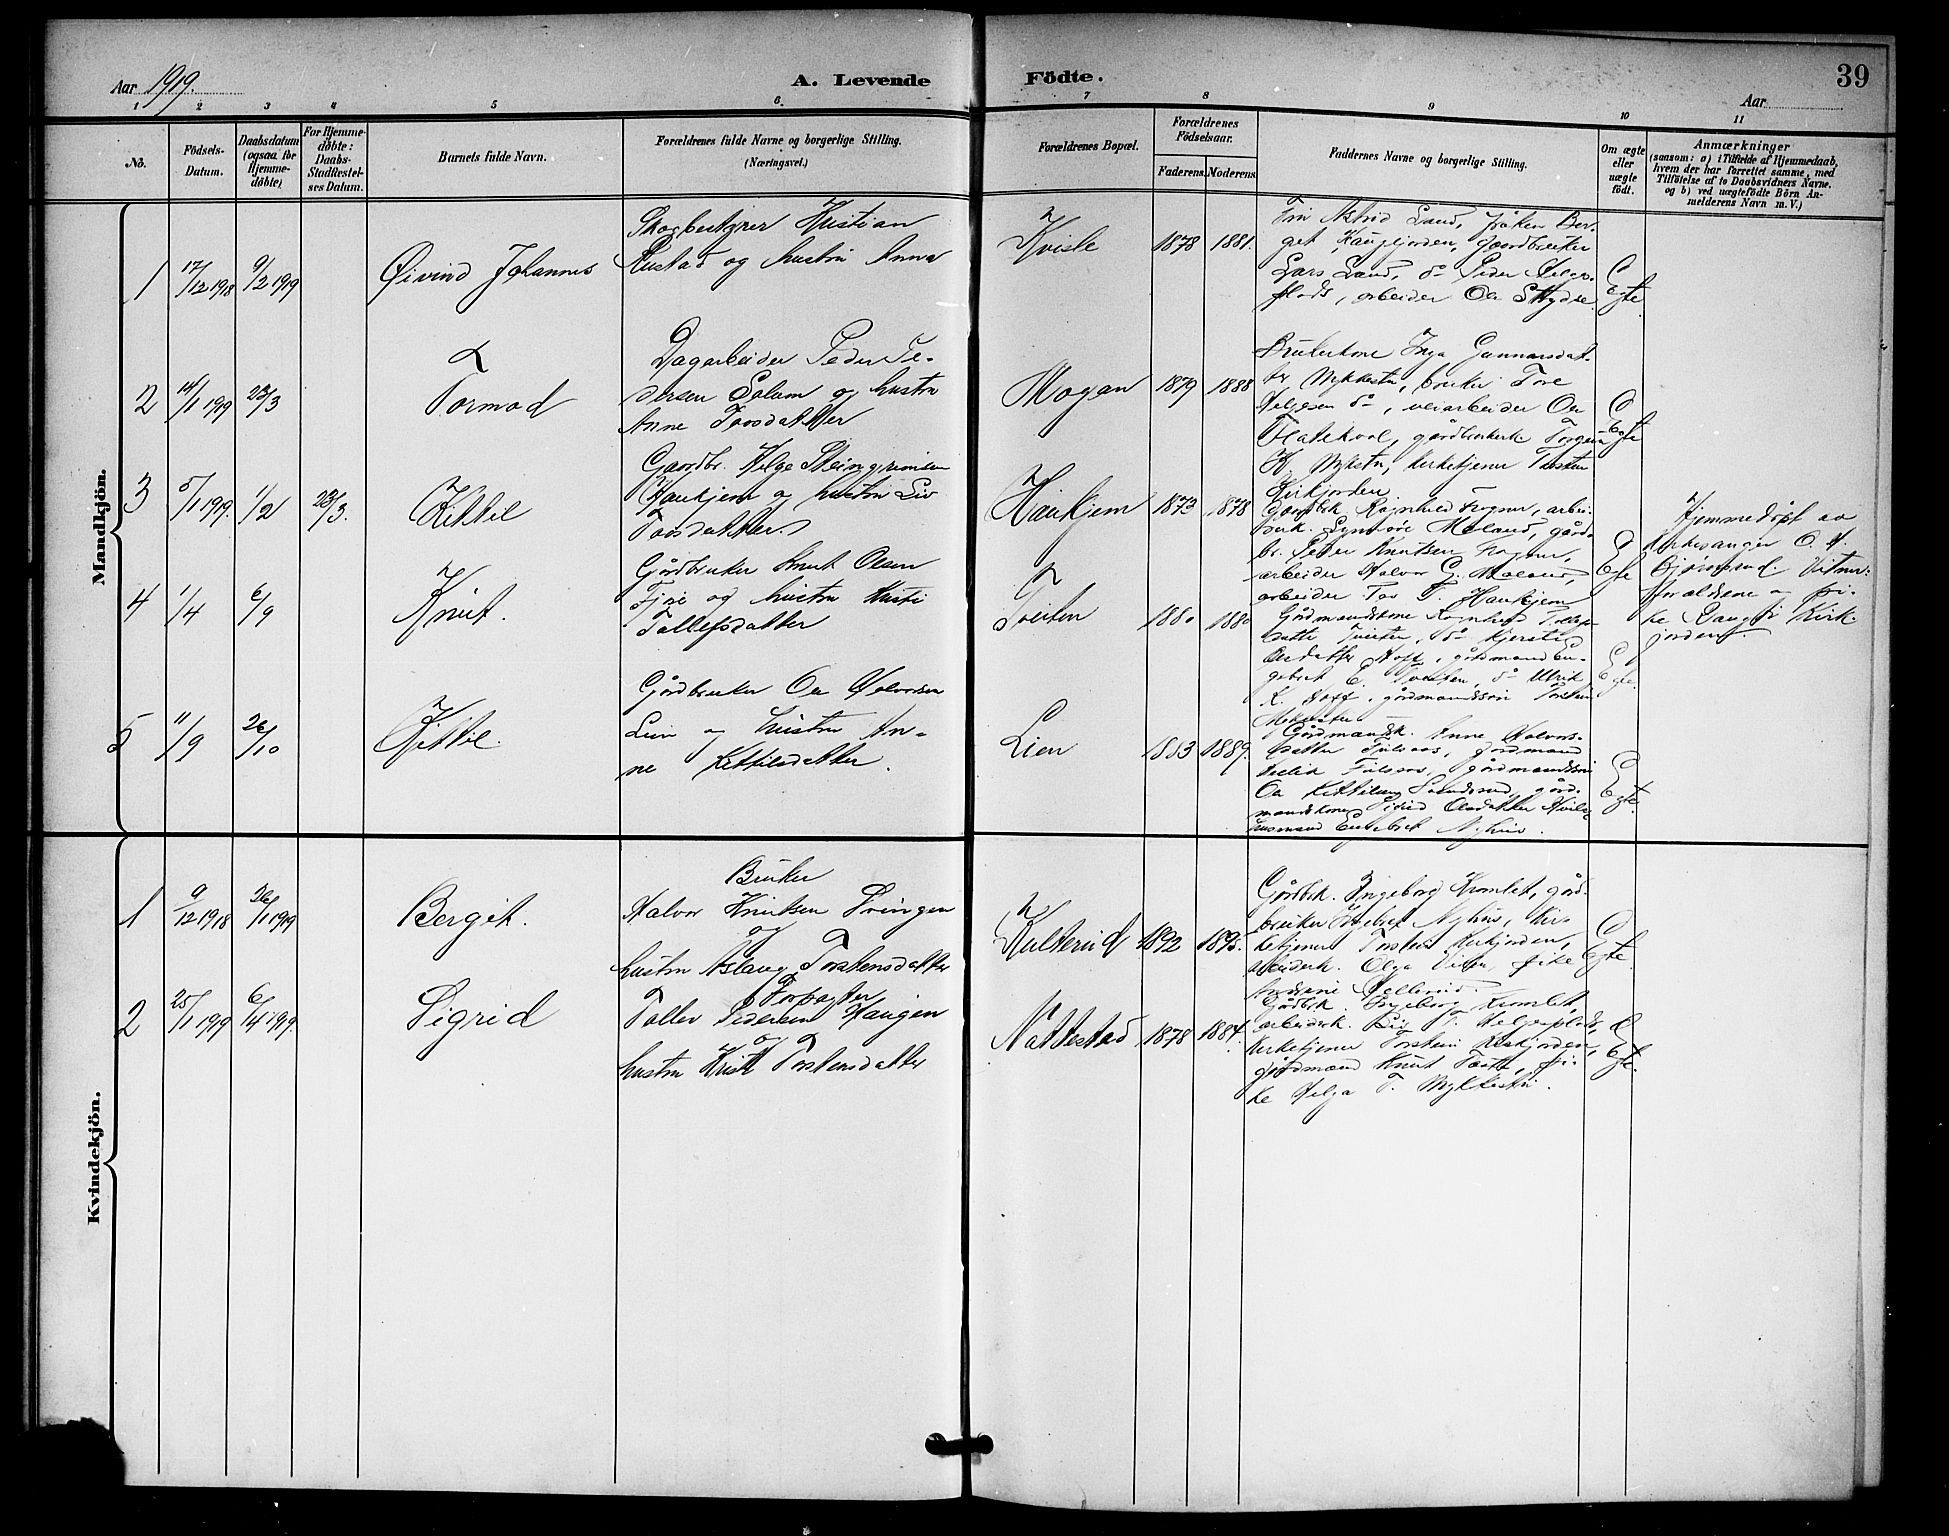 Aar 1919.
A. Levende Födte.
Aar
39
1 2 3 4 5 6 7 8 9 10 11
No.
Födsels-
Datum.
Daabsdatum
(ogsaa for
Hjemme-
döbte)
For Hjemme-
döbte:
Daabs-
Stadfæstel-
ses Datum.
Barnets fulde Navn.
Forældrenes fulde Navne og borgerlige Stilling.
(Næringsvei.)
Forældrenes Bopæl.
Forældrenes
Födselsaar.
Faderens.
Moderens.
Faddernes Navne og borgerlige Stilling.
Om ægte
eller
uægte
födt.
Anmærkninger
(saasom: a) i Tilfælde af Hjemmedaab,
hvem der har forrettet samme, med
Tilföielse af to Daabsvidners Navne.
og b) ved uægtefödte Börn An-
melderens Navn m. V.)
Mandkjön.
1
17/12 1918
9/2 1919
Øivind Johannes
Skogbestyrer Kristian
Rustad og hustru Anna
Kvisle
1878
1881.
Fru Astrid Land, frøken Ber-
get Haugejorden, gaardbruker
Lars Land, do Peder Helge-
plads, arbeider Ola
Egte
2
14/1 1919
23/3
Tormod
Dagarbeider Peder Pe-
dersen Solum og hustru
Anne Torsdatter
Mogan
1879
1888
Brukerkone Inga Gunnarsdat-
ter Mykkestu, bruker Tore
Helgesen do, veiarbeider Ola
gårdbruker Torgeir
K. Mykstu, kirketjener Torsten
Kirkjorden
Egte
3
5/1 1919.
1/2
23/3.
Kittil
Gaardbr. Helge Steingrimsen
Haukjem og hustru Liv
Torsdatter
Haukjem
1873
1878
Gaardbk. Ragnhild Frygne, arbei-
derk. Synnøve Meland, gård-
br. Peder Knutsen
arbeider Halvor G. Meland,
arbeider Tor T. Haukjem
Egte
Hjemmedøpt av
kirkesanger O. H.
Bjørnerud. Vitner:
forældrene og pi-
ke Kirk-
jorden.
4
1/4
6/9
Knut.
Gårdbruker Knut Olsen
og hustru Kristi
Tollefsdatter
Tveiten
1880
1880
Gårdmandskone Ragnhild Tollefs-
datter Tveiten, do Kjersti
Olsdatter Hoff, gårdmand En-
gebret E. Tveiten, do Ulrik
K. Hoff, gårdmandssøn Torstein
Egte.
5
11/9
26/10
Kittil.
Gårdbruker Ola Halvorsen
Lien og hustru An-
ne Kittilsdatter.
Lien
1883
1889.
Gårdmandsk. Anne Halvors-
datter gårdmand
gårdmandssøn
Ola Kittilsen gård-
mandskone Sigrid Olsdatter
husmand Engebret Nyhus.
Egte.
Kvindekjön.
1
9/12 1918
26/1 1919
Bergit.
Bruker
Halvor Knutsen Svingen
og
hustru Aslaug Torstensdatter
Kulterud
1892
1895.
Gårdbk. Ingeborg Kromlet, gård-
bruker Engebret Nyhus, kir-
ketjener Torstein Kirkjorden,
arbeiderk. Olga Viken, pike
Egte.
2
25/1 1919
6/4 1919.
Sigrid
Forpagter
Tollev Pedersen Haugen
og
hustru Kristi Torstensdatter
Nattestad
1878
1884.
Gårdbk. Ingeborg Kromlet,
arbeidsk. Liv T. Helgeplads,
kirketjener Torstein Kirkjorden,
gårdmand Knut pi-
ke Helga T. Mykkestu.
Egte.